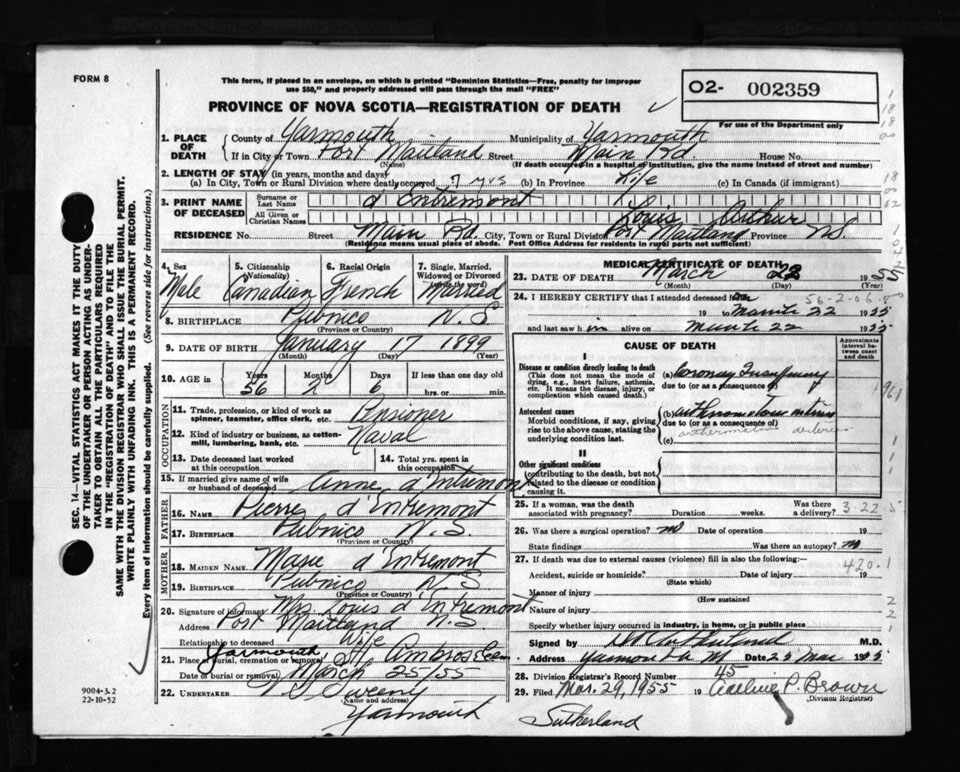 FORM 8
This form, if placed in an envelope, on which is printed "Dominion Statistics—Free, penalty for improper
use $50," and properly addressed will pass through the mail "FREE"
O2- 002359
PROVINCE OF NOVA SCOTIA—REGISTRATION OF DEATH
For use of the Department only
1. PLACE OF DEATH County of Yarmouth Municipality of Yarmouth
If in City or Town Port Maitland Street Main Rd. House No.
(Name) (If death occurred in a hospital or institution, give the name instead of street and number)
2. LENGTH OF STAY (in years, months and days)
(a) In City, Town or Rural Division where death occurred 7 yrs (b) In Province Life (c) In Canada (if immigrant)
3. PRINT NAME OF DECEASED Surname or Last Name d'Entremont
All Given or Christian Names Louis Arthur
RESIDENCE No. Street Main Rd. City, Town or Rural Division Port Maitland Province N.S.
(Residence means usual place of abode. Post Office Address for residents in rural parts not sufficient)
4. Sex Male
5. Citizenship (Nationality) Canadian
6. Racial Origin French
7. Single, Married, Widowed or Divorced (write the word) Married
8. BIRTHPLACE Pubnico N.S
(Province or Country)
9. DATE OF BIRTH January 17 1899
(Month) (Day) (Year)
10. AGE in Years Months Days If less than one day old
56 2 6 hrs. or min.
OCCUPATION
11. Trade, profession, or kind of work as spinner, teamster, office clerk, etc. Pensioner
12. Kind of industry or business, as cotton-mill, lumbering, bank, etc. Naval
13. Date deceased last worked at this occupation
14. Total yrs. spent in this occupation
15. If married give name of wife or husband of deceased Anne d'Entremont
FATHER
16. Name Pierre d'Entremont
17. BIRTHPLACE Pubnico N.S.
(Province or Country)
MOTHER
18. MAIDEN NAME Marie d'Entremont
19. BIRTHPLACE Pubnico N.S
(Province or Country)
20. Signature of informant Mrs. Louis d'Entremont
Address Port Maitland N.S.
Relationship to deceased Wife
21. Place of burial, cremation or removal Yarmouth St. Ambrose Cem
Date of burial or removal March 25/55
22. UNDERTAKER Sweeny
(Name and address)
Yarmouth
9004-3.2
22-10-52
MEDICAL CERTIFICATE OF DEATH
23. DATE OF DEATH March 22 1955
(Month) (Day) (Year)
24. I HEREBY CERTIFY that I attended deceased from
19 to March 22 1955
and last saw him alive on March 22 1955
CAUSE OF DEATH
Approximate interval between onset and death
I
Disease or condition directly leading to death
(This does not mean the mode of dying, e.g., heart failure, asthenia, etc. It means the disease, injury, or complication which caused death.)
(a) Coronary Insufficiency
due to (or as a consequence of)
Antecedent causes
Morbid conditions, if any, giving rise to the above cause, stating the underlying condition last.
(b)
due to (or as a consequence of)
(c)
II
Other significant conditions
(contributing to the death, but not related to the disease or condition causing it.
25. If a woman, was the death associated with pregnancy? Duration weeks. Was there a delivery?
3-22-5
26. Was there a surgical operation? no Date of operation 19
State findings Was there an autopsy? no
27. If death was due to external causes (violence) fill in also the following:-
420.1
Accident, suicide or homicide? Date of injury 19
(State which)
Manner of injury
(How sustained
Nature of injury
Specify whether injury occurred in industry, in home, or in public place
Signed by Sutherland M.D.
Address Yarmouth NS Date 25 Mar 1955
28. Division Registrar's Record Number 45
29. Filed Mar. 29, 1955 19 Adeline P. Brown
(Division Registrar)
Sutherland
SEC. 14—VITAL STATISTICS ACT MAKES IT THE DUTY
OF THE UNDERTAKER OR PERSON ACTING AS UNDER-
TAKER TO OBTAIN ALL THE PARTICULARS REQUIRED
IN THE "REGISTRATION OF DEATH" AND TO FILE THE
SAME WITH THE DIVISION REGISTRAR WHO SHALL ISSUE THE BURIAL PERMIT.
WRITE PLAINLY WITH UNFADING INK. THIS IS A PERMANENT RECORD.
Every item of information should be carefully supplied. (See reverse side for instructions.)